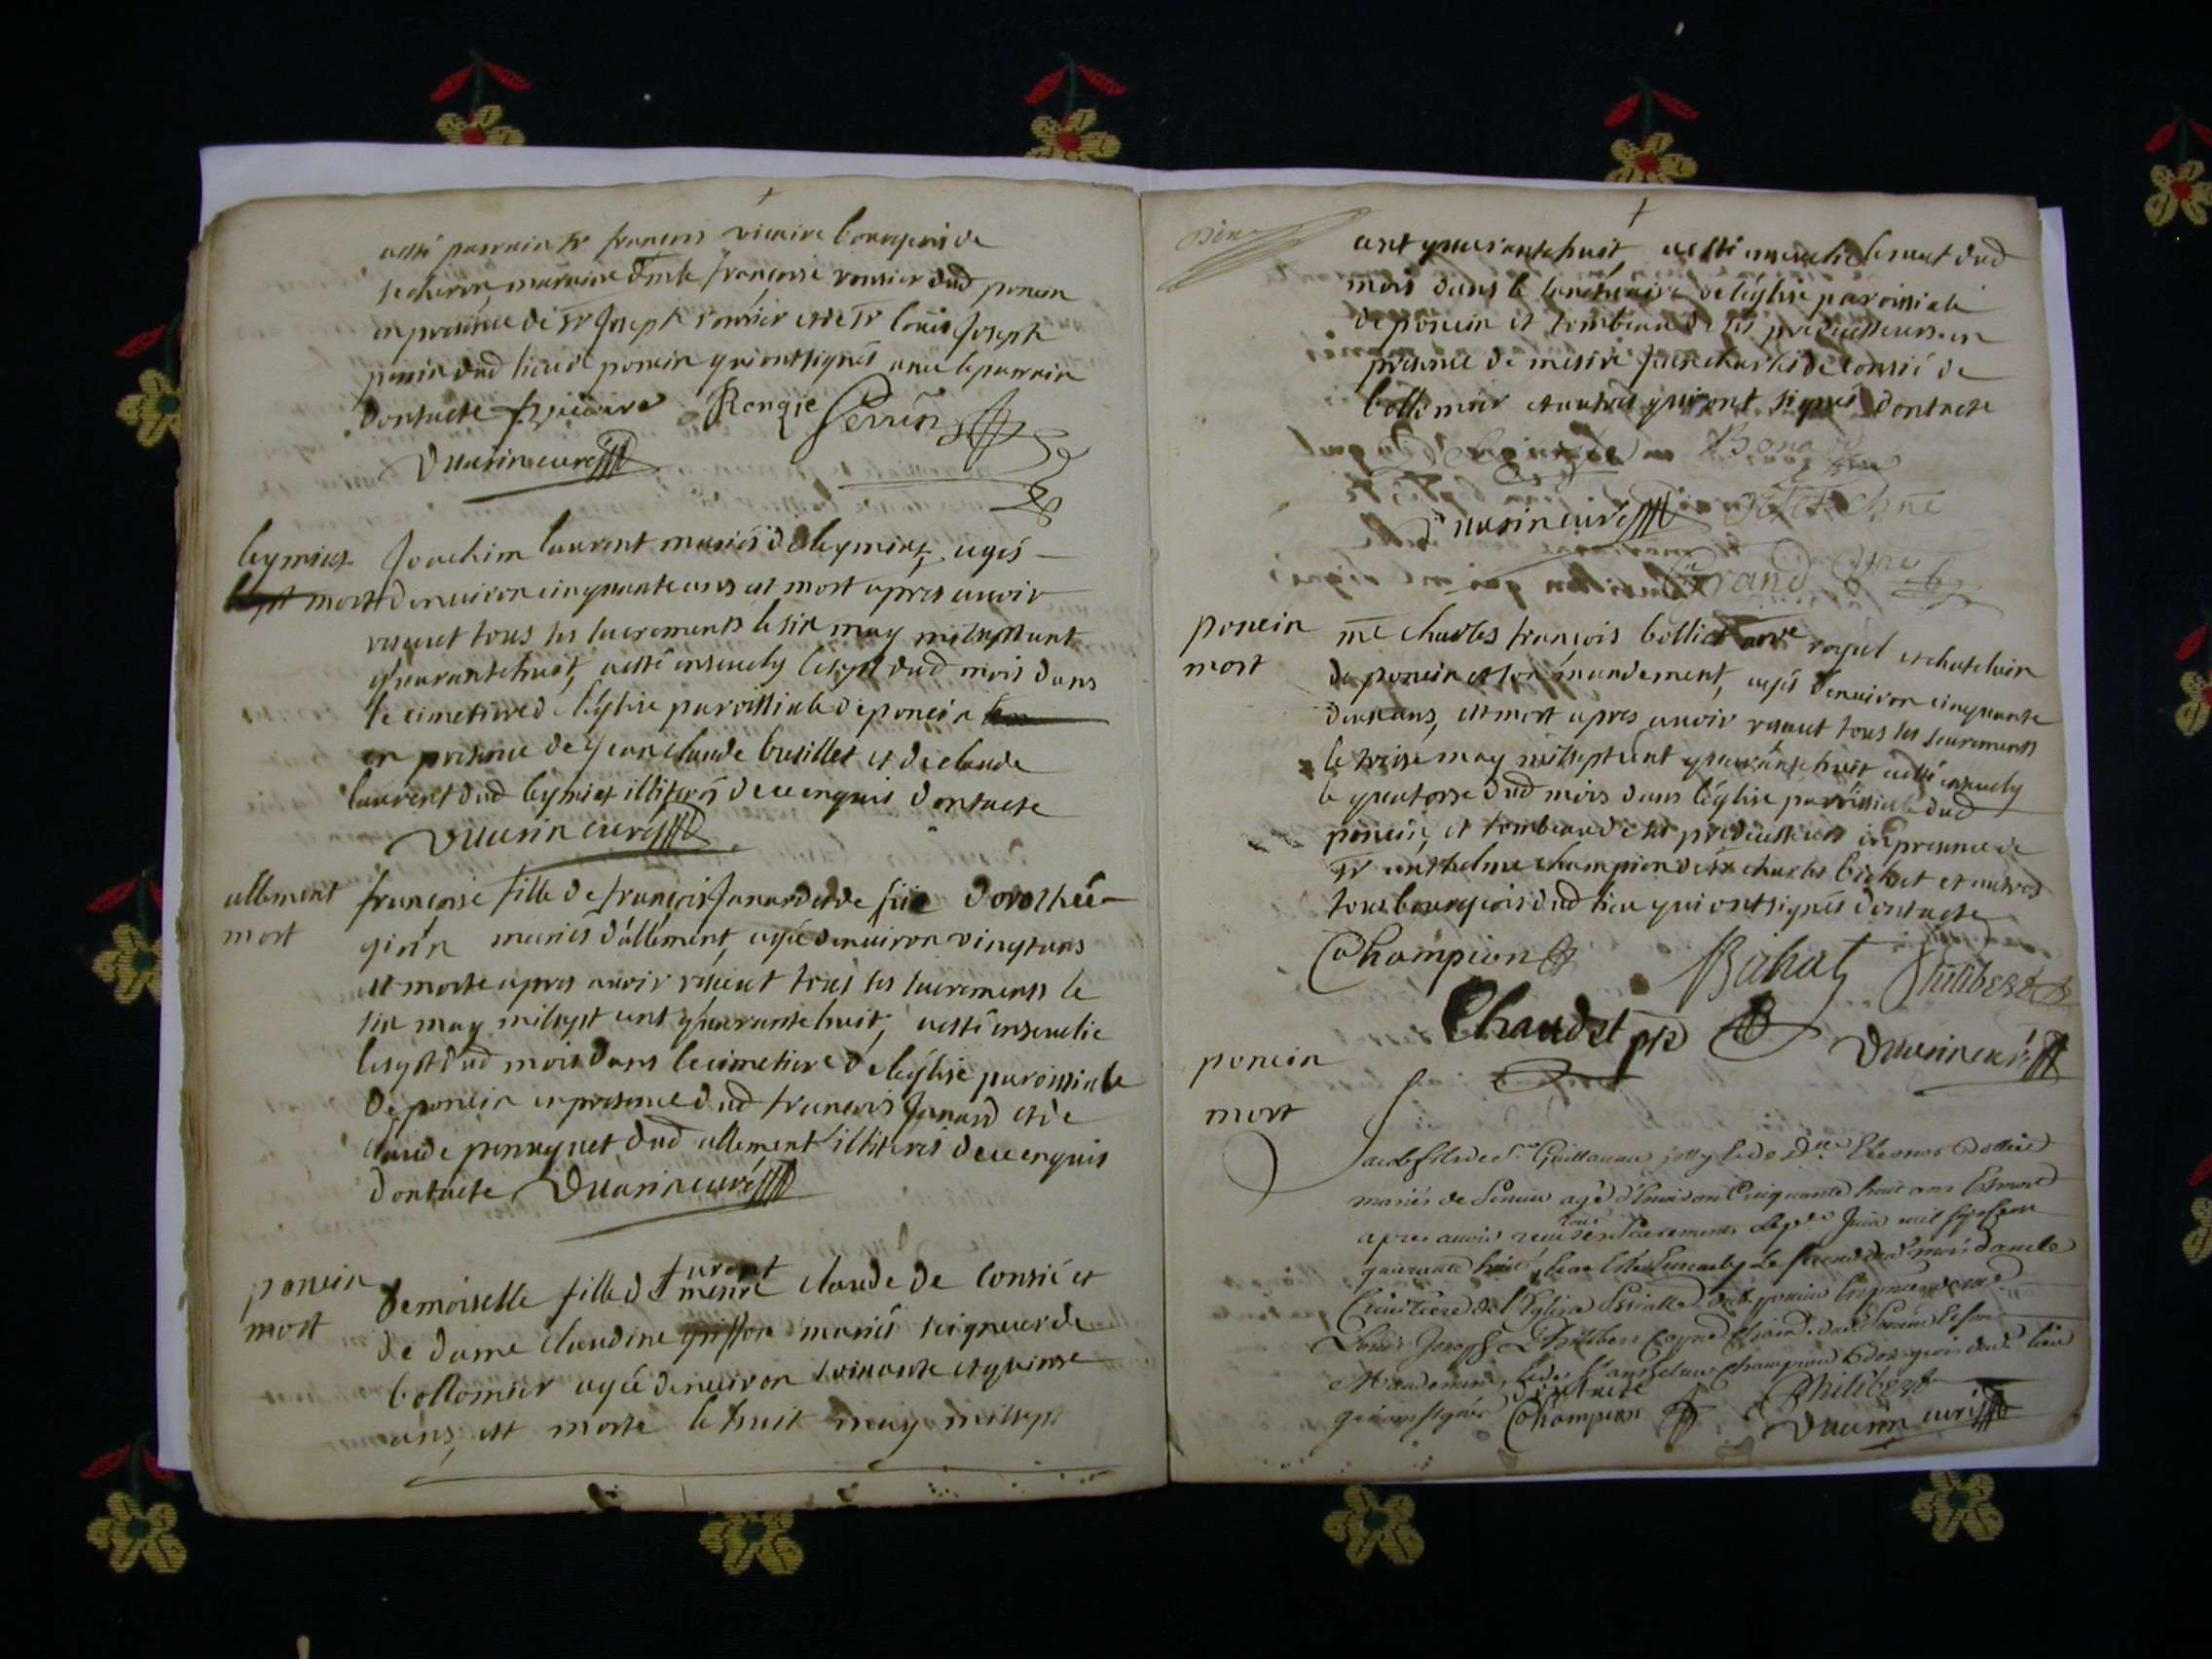 esté parrain sr françois vicaire bourgeois de
secheron, marraine dmlle françoise ronsier dud poncin
en presence de sr Joseph ronsier et de sr louis Joseph
perrin dud lieu de poncin qui ont signés avec le parrain
dont acte Rongie Perrin
Duurin curé
leymiat Joachim laurent mariés de leymiat, agés
mort denviron cinquante ans est mort apres avoir
reseut tous ses sacrements le six may mil sept cent
quarante huit, aesté ensevely le sept dud mois dans
le cimetiere de leglise paroissiale de poncin
en presence de Jean claude busillet et de claude
laurent dud leymiat illiterés de ce enquis dont acte
Duurin curé
allement françoise fille de françois Janard et de Dorothée
mort mariés d'allement, agée denviron vingt ans
est morte apres avoir reseut tous ses sacrements le
six may mil sept cent quarante huit, aesté ensevelie
le sept dud mois dans le cimetiere de leglise paroissiale
de poncin en presence dud françois Janard et de
claude dud allement illiterés de ce enquis
dont acte Duurin curé
poncin demoiselle fille de messire claude de Consié et
mort de dame claudine griffon mariés seigneur de
bollomier agée denviron soixante et quinse
ans, est morte le huit may mil sept
cent quarante huit, aesté ensevelie le neuf dud
mois dans le sanctuaire de léglise paroissiale
de poncin et tombeau de ses predecesseurs en
presence de mesire Jean charles de Consié de
bollomier et autres qui ont signés dont acte
Duurin curé
Grand
poncin me charles françois bolliet royal et chatelain
mort de poncin et son mandement, agés denviron cinquante
deux ans, est mort apres avoir reseut tous ses sacrements
le treise may mil sept cent quarante huit aesté ensevely
le quatorse dud mois dans léglise paroissiale dud
poncin, et tombeau de ses predecesseurs en presence de
sr anthelme champion de sr charles bichat et autres
tous bourgeois dud lieu qui ont signés dont acte
Champion Bichat Philibert
Chaudet Duurin curé
poncin
mort
fils de sr Guillaume Jolly et de dlle Eleonor
mariés de Poncin agé d'Environ Cinquante huit ans Est mort
apres avoir receu tous ses sacrements le Juin mil sept cent
quarante huit, Ensevely Le second dud mois dans le
Cimetiere de l'Eglise dud poncin En presence de
Louis Joseph Philibert dud Poncin Et son
Mandement, Et de sr anthelme champion Bourgeois dud lieu
qui ont signés dont acte Champion Philibert
Duurin curé